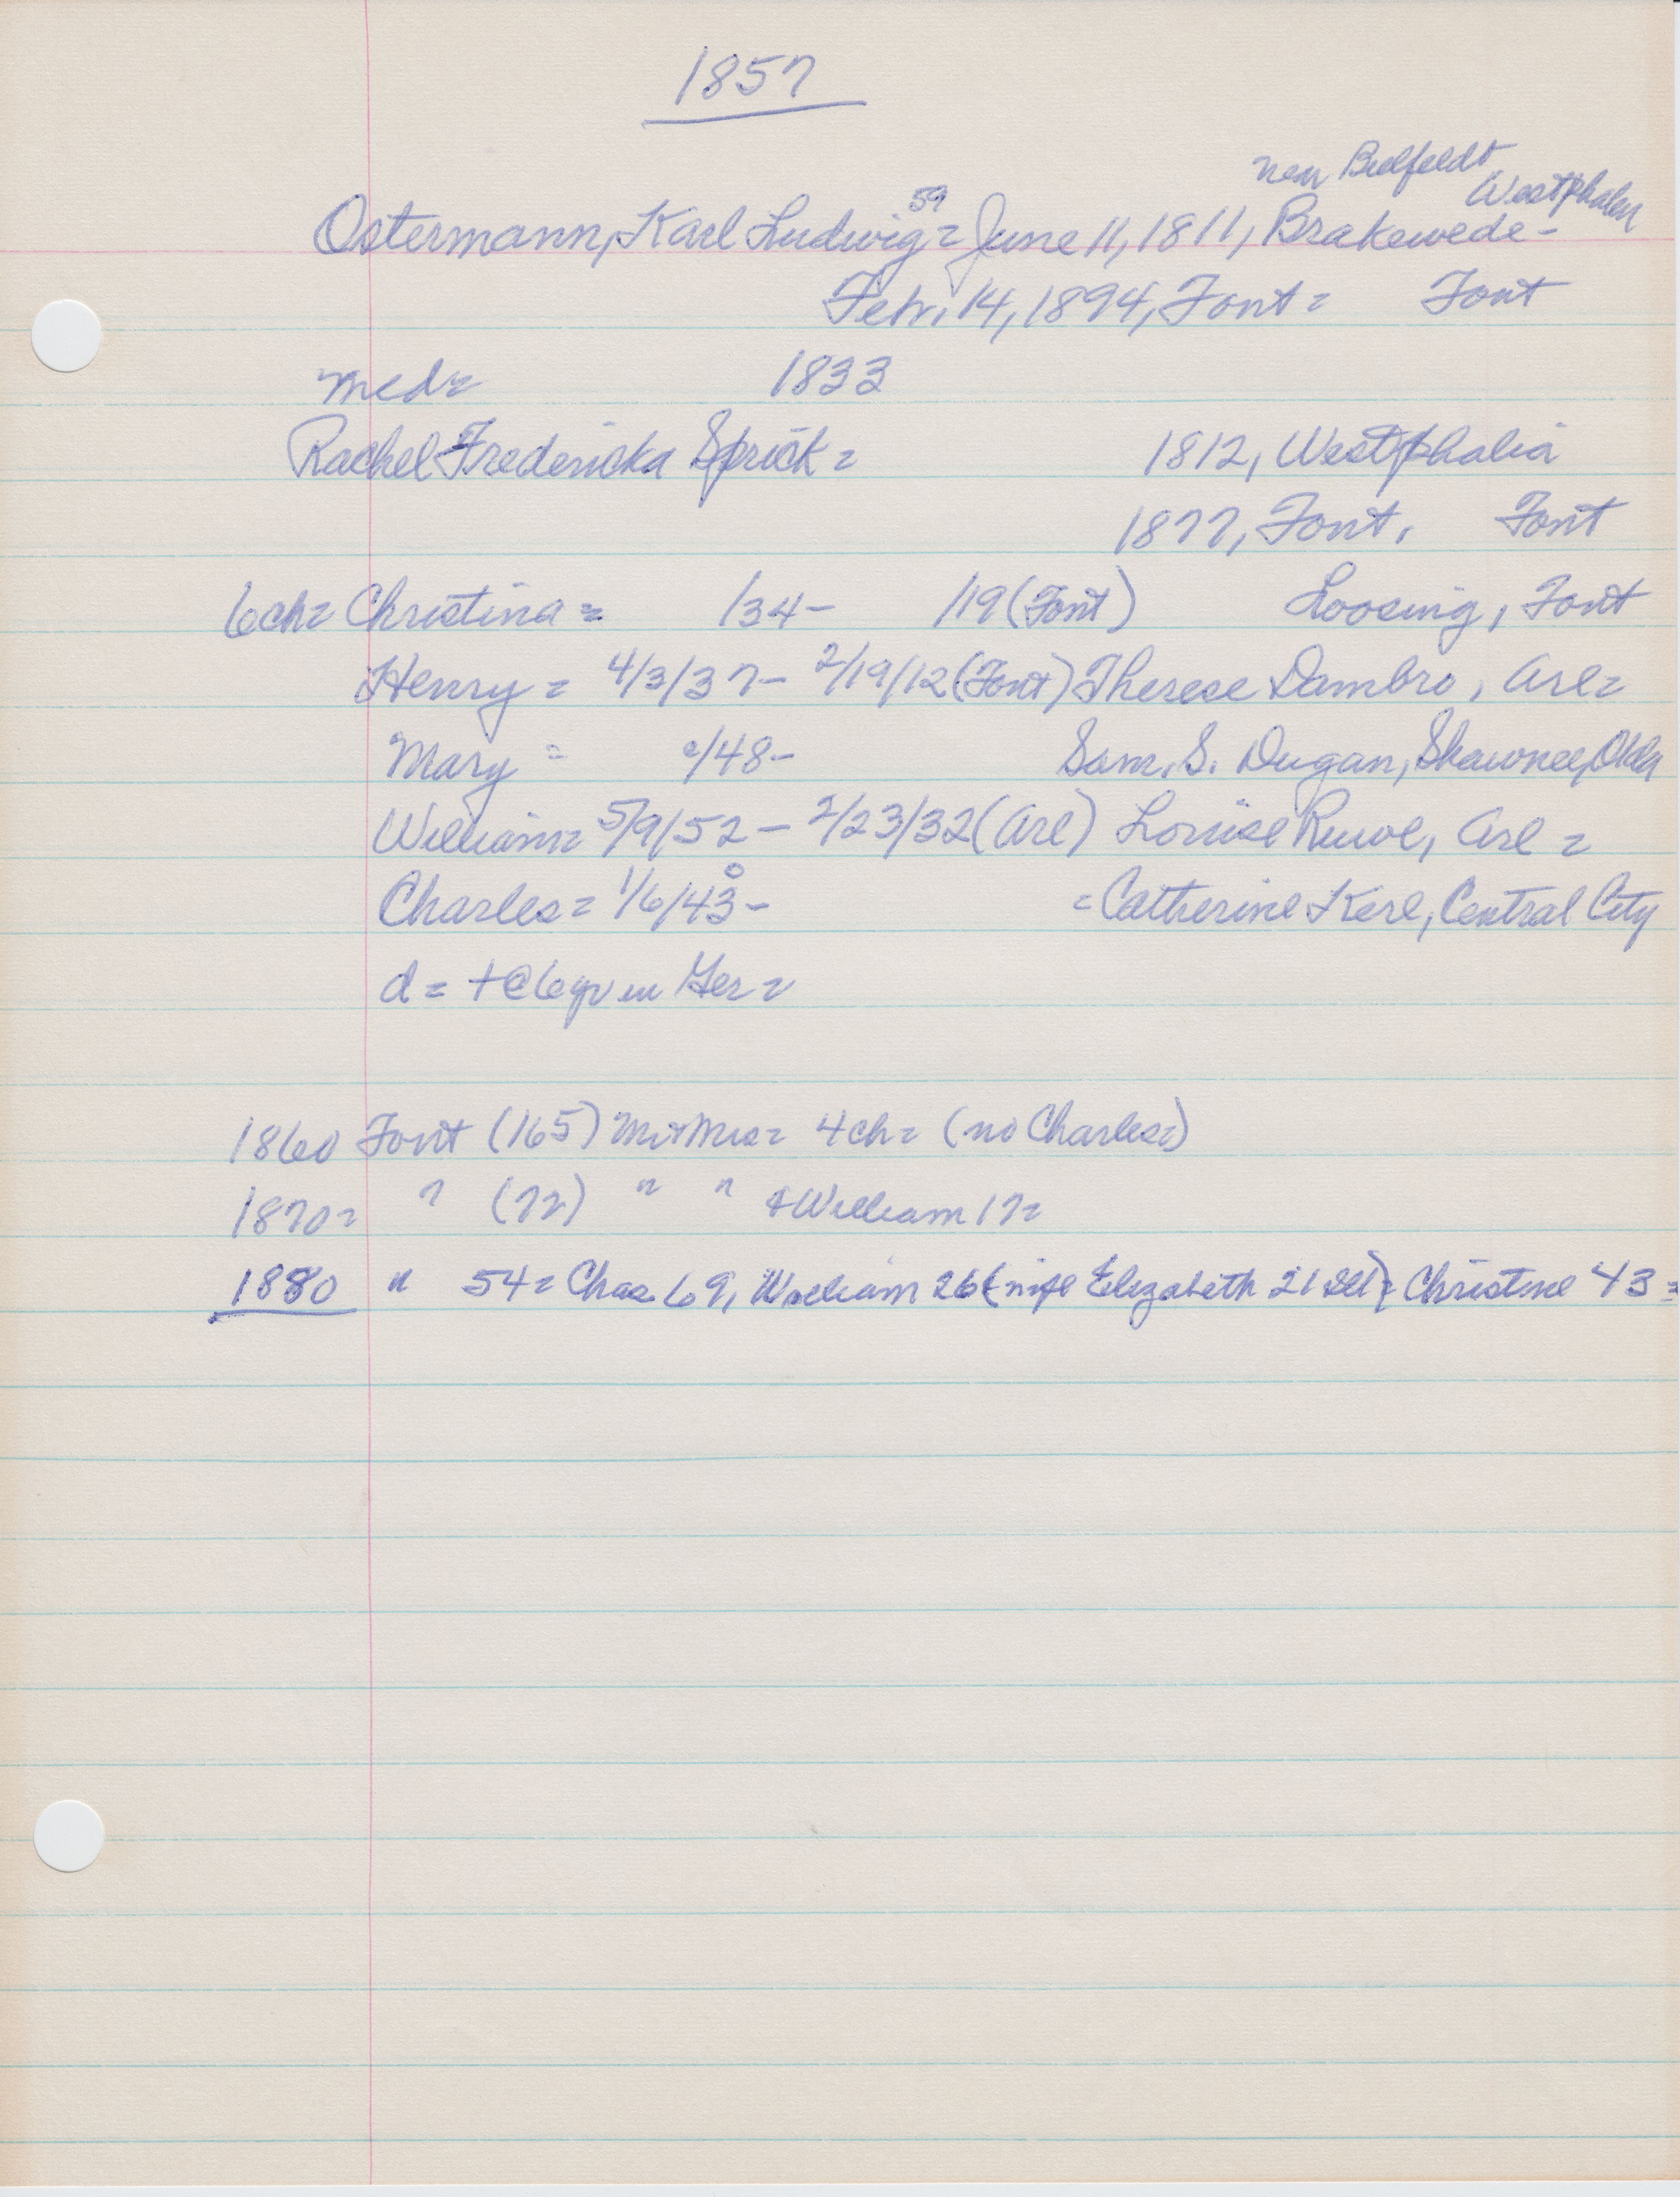 1857
near Bielfeldt
Westphalen
59
Ostermann, Karl Ludwig = June 11, 1811, Brakewede -
Feb. 14, 1894, Font = Font
med = 1833
Rachel Fredericka Sprick = 1812, Westphalia
1877, Font, Font
6ch = Christina = /34 - /19 (Font) Loosing, Font
Henry = 4/3/37 - 2/19/12 (Font) Therese Dambro, Arl =
Mary = c/48 - Sam. S. Dugan, Shawnee, Okla
William = 5/9/52 - 2/23/32 (Arl) Louise Ruwe, Arl =
Charles = 1/6/43 - = Catherine Kerl, Central City
d = + @ 6 yr in Ger =
1860 Font (165) Mr + Mrs = 4ch = (no Charles)
1870 = " (72) " " & William 17 =
1880 " 54 = Chas 69, William 26 (wife Elizabeth 21 Ill) = Christine 43 =